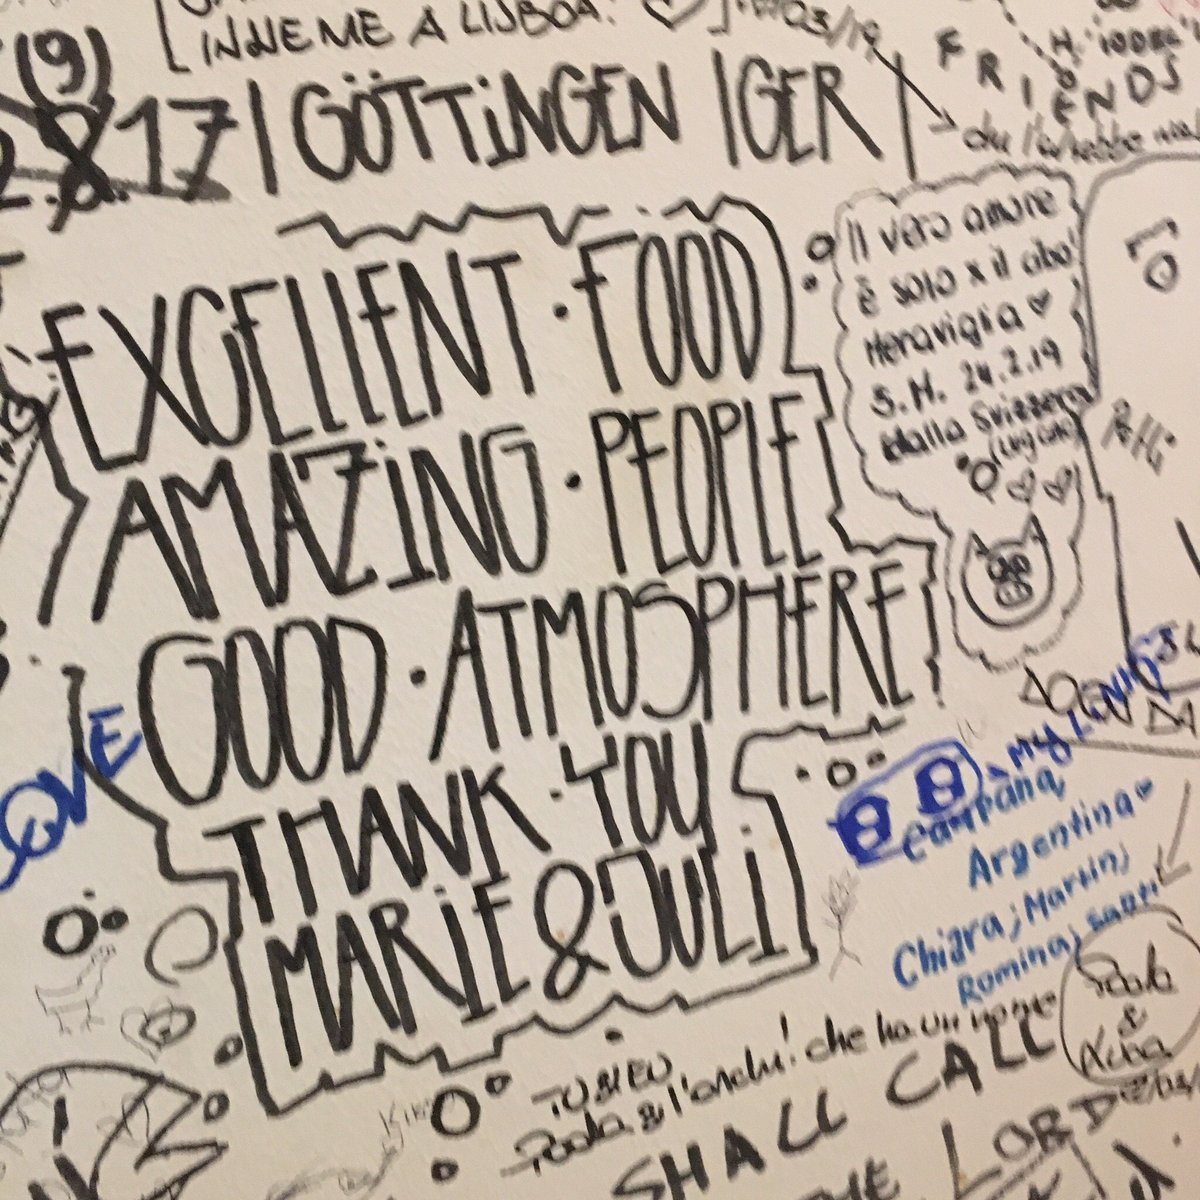 INSIEME A LISBOA!
(9)
17 | GÖTTINGEN | GER |
FRIENDS
EXCELLENT · FOOD
AMAZING · PEOPLE
GOOD · ATMOSPHERE
THANK · YOU
MARIE & JULI
Il vero amore
è solo x il cibo!
Meraviglia
S.M. 24.2.19
dalla Svizzera
LOVE
MY
Campana,
Argentina
Chiara; Martin;
Romina; Santi
Paola
&
TU SEI
Paola & che ha un nome
SHALL CALL
THE LORD